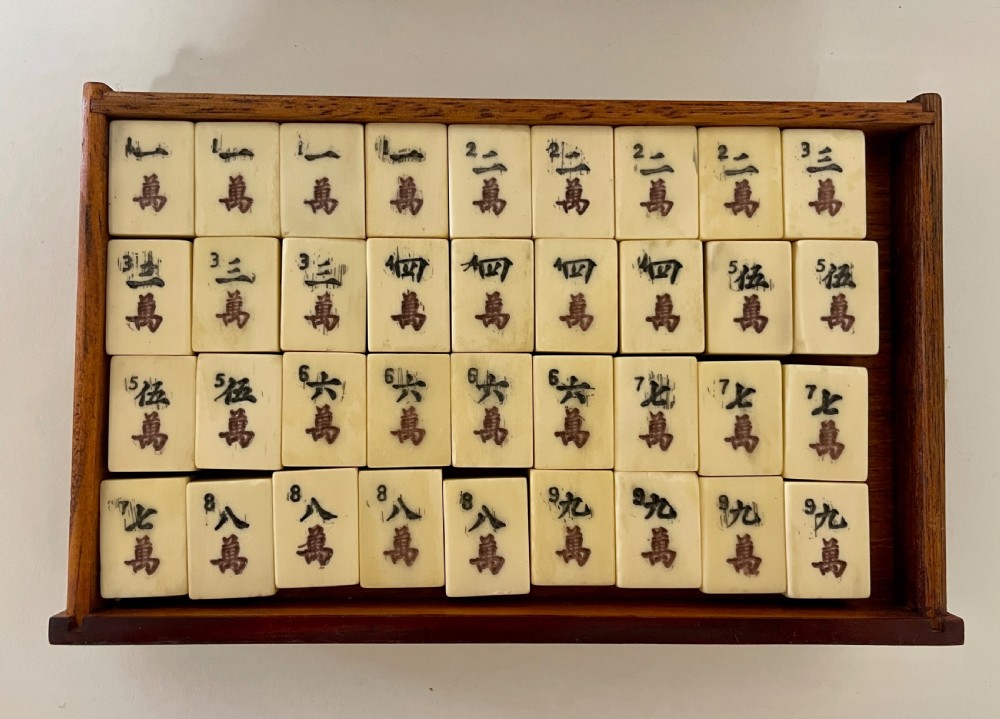 1一 1一 1一 1一 2二 2二 2二 2二 3三
萬 萬 萬 萬 萬 萬 萬 萬 萬
3三 3三 3三 4四 4四 四 4四 5伍 5伍
萬 萬 萬 萬 萬 萬 萬 萬 萬
5伍 5伍 6六 6六 6六 6六 7七 7七 7七
萬 萬 萬 萬 萬 萬 萬 萬 萬
7七 8八 8八 8八 8八 9九 9九 9九 9九
萬 萬 萬 萬 萬 萬 萬 萬 萬